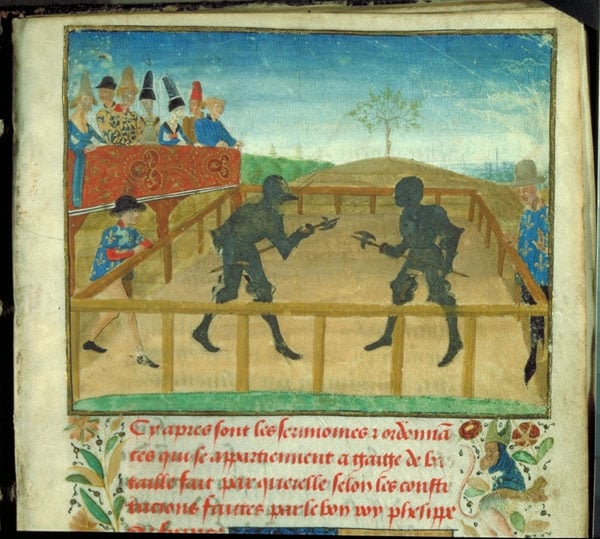 Cy apres sont les serimoines & ordonnā
ces qui se appartiennent a gaige de ba
taille fait par querelle selon les consti
tucions faictes par le bon roy phelippe
de france